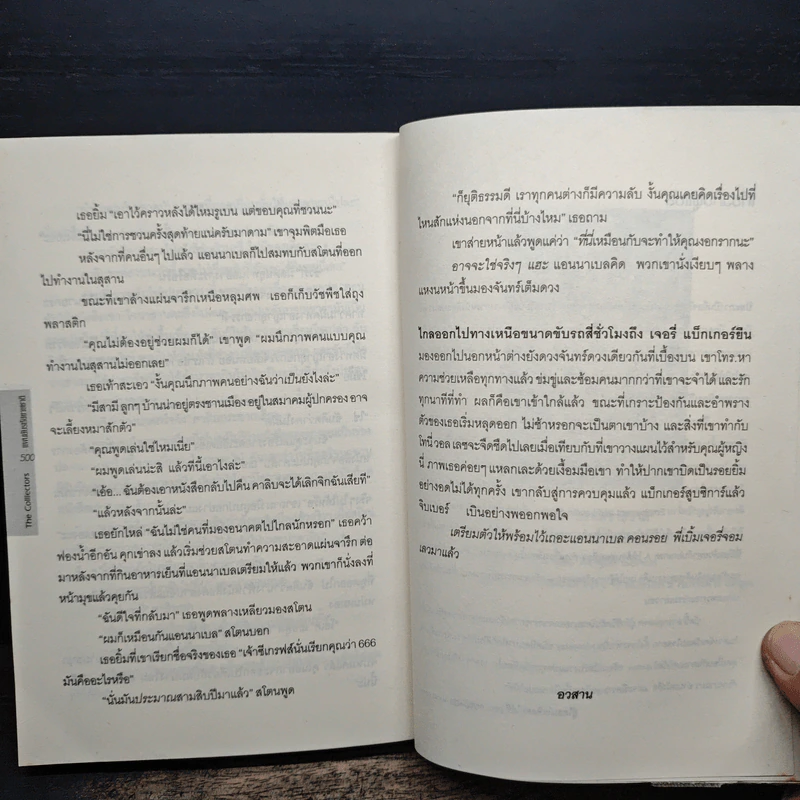 เธอยิ้ม “เอาไว้คราวหลังได้ไหมรูเบน แต่ขอบคุณที่ชวนนะ”
“นี่ไม่ใช่การชวนครั้งสุดท้ายแน่ครับมาดาม” เขาจุมพิตมือเธอ
หลังจากที่คนอื่นๆ ไปแล้ว แอนนาเบลก็ไปสมทบกับสโตนที่ออก
ไปทำงานในสุสาน
ขณะที่เขาล้างแผ่นจารึกเหนือหลุมศพ เธอก็เก็บวัชพืชใส่ถุง
พลาสติก
“คุณไม่ต้องอยู่ช่วยผมก็ได้” เขาพูด “ผมนึกภาพคนแบบคุณ
ทำงานในสุสานไม่ออกเลย”
เธอเท้าสะเอว “งั้นคุณนึกภาพคนอย่างฉันว่าเป็นยังไงล่ะ”
“มีสามี ลูกๆ บ้านน่าอยู่ตรงชานเมือง อยู่ในสมาคมผู้ปกครอง อาจ
จะเลี้ยงหมาสักตัว”
“คุณพูดเล่นใช่ไหมเนี่ย”
“ผมพูดเล่นน่ะสิ แล้วทีนี้เอาไงล่ะ”
“เอ้อ... ฉันต้องเอาหนังสือกลับไปคืน คาลิบจะได้เลิกจิกฉันเสียที”
“แล้วหลังจากนั้นล่ะ”
เธอยักไหล่ “ฉันไม่ใช่คนที่มองอนาคตไปไกลนักหรอก” เธอคว้า
ฟองน้ำอีกอัน คุกเข่าลง แล้วเริ่มช่วยสโตนทำความสะอาดแผ่นจารึก ต่อ
มาหลังจากที่กินอาหารเย็นที่แอนนาเบลเตรียมให้แล้ว พวกเขาก็นั่งลงที่
หน้ามุขแล้วคุยกัน
“ฉันดีใจที่กลับมา” เธอพูดพลางเหลียวมองสโตน
“ผมก็เหมือนกันแอนนาเบล” สโตนบอก
เธอยิ้มที่เขาเรียกชื่อจริงของเธอ “เจ้าซีเกรฟส์นั่นเรียกคุณว่า 666
มันคืออะไรหรือ”
“นั่นมันประมาณสามสิบปีมาแล้ว” สโตนพูด
500
The Collectors
“ก็ยุติธรรมดี เราทุกคนต่างก็มีความลับ งั้นคุณเคยคิดเรื่องไปที่
ไหนสักแห่งนอกจากที่นี่บ้างไหม” เธอถาม
เขาส่ายหน้าแล้วพูดแค่ว่า “ที่นี่เหมือนกับจะทำให้คุณงอกรากนะ”
อาจจะใช่จริงๆ แฮะ แอนนาเบลคิด พวกเขานั่งเงียบๆ พลาง
แหงนหน้าขึ้นมองจันทร์เต็มดวง
ไกลออกไปทางเหนือขนาดขับรถสี่ชั่วโมงถึง เจอรี่ แบ็กเกอร์ยืน
มองออกไปนอกหน้าต่างยังดวงจันทร์ดวงเดียวกันที่เบื้องบน เขาโทร.หา
ความช่วยเหลือทุกทางแล้ว ข่มขู่และซ้อมคนมากกว่าที่เขาจะจำได้ และรัก
ทุกนาทีที่ทำ ผลก็คือเขาเข้าใกล้แล้ว ขณะที่เกราะป้องกันและอำพราง
ตัวของเธอเริ่มหลุดลอก ไม่ช้าหรอกจะเป็นตาเขาบ้าง และสิ่งที่เขาทำกับ
โทนี่ วอลเลซจะจืดชืดไปเลยเมื่อเทียบกับที่เขาวางแผนไว้สำหรับคุณผู้หญิง
นี่ ภาพเธอค่อยๆ แหลกเละด้วยเงื้อมมือเขา ทำให้ปากเขาบิดเป็นรอยยิ้ม
อย่างอดไม่ได้ทุกครั้ง เขากลับสู่การควบคุมแล้ว แบ็กเกอร์สูบซิการ์แล้ว
จิบเบอร์ เป็นอย่างพออกพอใจ
เตรียมตัวให้พร้อมไว้เถอะแอนนาเบล คอนรอย พี่เบิ้มเจอรี่จอม
เลวมาแล้ว
อวสาน